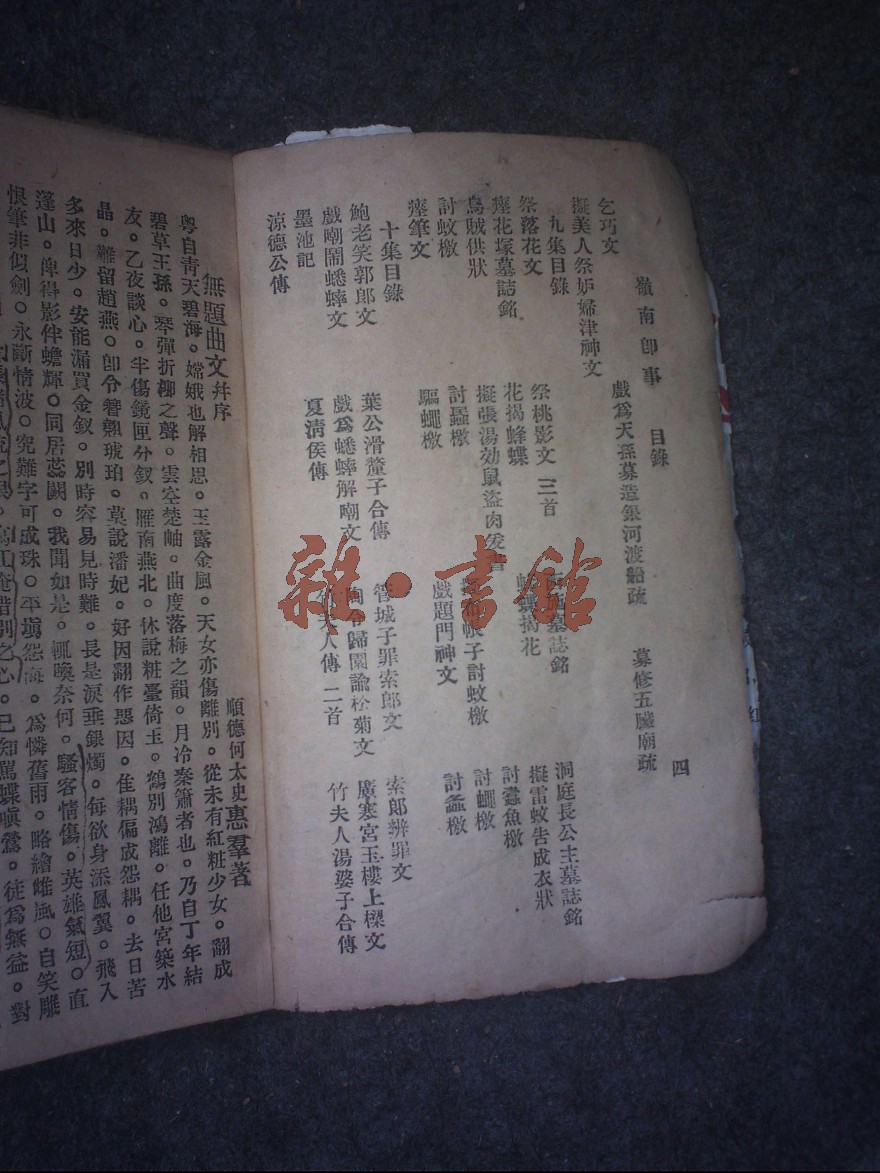 嶺南即事　目錄　四
乞巧文　戲爲天孫募造銀河渡船疏　募修五臟廟疏
擬美人祭妒婦津神文
九集目錄
祭落花文　祭桃影文 三首　墓誌銘　洞庭長公主墓誌銘
瘞花塚墓誌銘　花揭蜂蝶　蝶揭花　擬雷蚊告成衣狀
烏賊供狀　擬張湯効鼠盜肉爰　帳子討蚊檄　討蠹魚檄
討蚊檄　討蝨檄　戲題門神文　討蠅檄
瘞筆文　驅蠅檄　討蚤檄
十集目錄
鮑老笑郭郎文　葉公滑釐子合傳　管城子罪索郎文　索郎辨罪文
戲嘲鬧蟋蟀文　戲爲蟋蟀解嘲文　令歸園諭松菊文　廣寒宮玉樓上樑文
墨池記　夏淸侯傳　夫人傳 二首　竹夫人湯婆子合傳
涼德公傳
無題曲文 幷序
順德何太史惠羣著
粵自靑天碧海。嫦娥也解相思。玉露金風。天女亦傷離別。從未有紅粧少女。翻成
碧草王孫。琴彈折柳之聲。雲空楚岫。曲度落梅之韻。月冷秦簫者也。乃自丁年結
友。乙夜談心。半傷鏡匣分釵。雁南燕北。休說粧臺倚玉。鶴別鴻離。任他宮築水
晶。難留趙燕。卽令簪𤍠琥珀。莫說潘妃。好因翻作惡因。佳耦偏成怨耦。去日苦
多來日少。安能漏買金釵。別時容易見時難。長是淚垂銀燭。每欲身添鳳翼。飛入
蓬山。俾得影伴蟾輝。同居蕊闕。我聞如是。輒喚奈何。騷客情傷。英雄氣短。直
恨筆非似劍。永斷情波。究難字可成珠。平塡怨海。爲憐舊雨。略繪雌風。自笑雕
惜別之心。已知罵蝶嗔鶯。徒爲無益。對
雜·書館